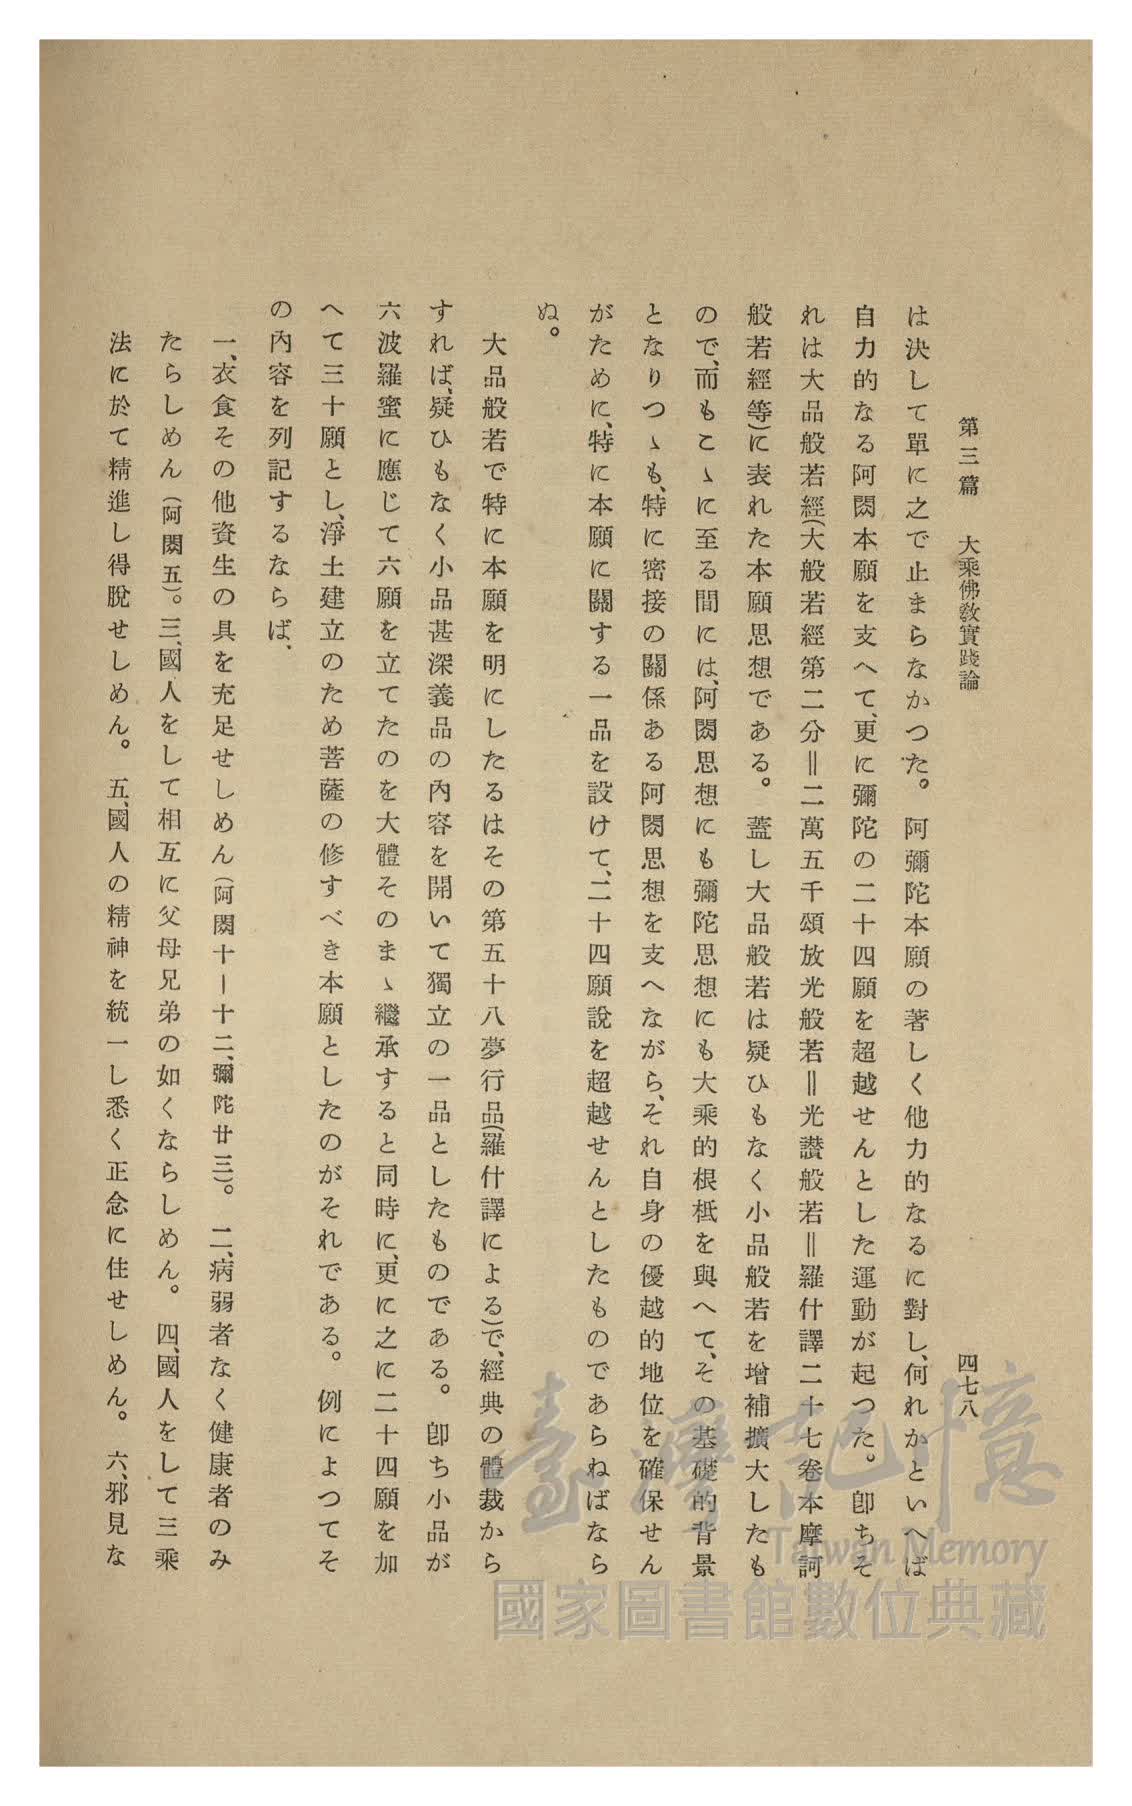 第三篇　大乘佛敎實踐論　四七八
は決して單に之で止まらなかつた。阿彌陀本願の著しく他力的なるに對し、何れかといへば
自力的なる阿閦本願を支へて、更に彌陀の二十四願を超越せんとした運動が起つた。卽ちそ
れは大品般若經(大般若經第二分＝二萬五千頌放光般若＝光讃般若＝羅什譯二十七卷本摩訶
般若經等)に表れた本願思想である。蓋し大品般若は疑ひもなく小品般若を增補擴大したも
ので、而もこゝに至る間には、阿閦思想にも彌陀思想にも大乘的根柢を與へて、その基礎的背景
となりつゝも、特に密接の關係ある阿閦思想を支へながら、それ自身の優越的地位を確保せん
がために、特に本願に關する一品を設けて、二十四願說を超越せんとしたものであらねばなら
ぬ。
大品般若で特に本願を明にしたるはその第五十八夢行品(羅什譯による)で、經典の體裁から
すれば、疑ひもなく小品甚深義品の內容を開いて獨立の一品としたものである。卽ち小品が
六波羅蜜に應じて六願を立てたのを大體そのまゝ繼承すると同時に、更に之に二十四願を加
へて三十願とし、淨土建立のため菩薩の修すべき本願としたのがそれである。例によつてそ
の內容を列記するならば、
一、衣食その他資生の具を充足せしめん(阿閦十—十二、彌陀廿三)。二、病弱者なく健康者のみ
たらしめん(阿閦五)。三、國人をして相互に父母兄弟の如くならしめん。四、國人をして三乘
法に於て精進し得脫せしめん。五、國人の精神を統一し悉く正念に住せしめん。六、邪見な
臺灣記憶
Taiwan Memory
國家圖書館數位典藏